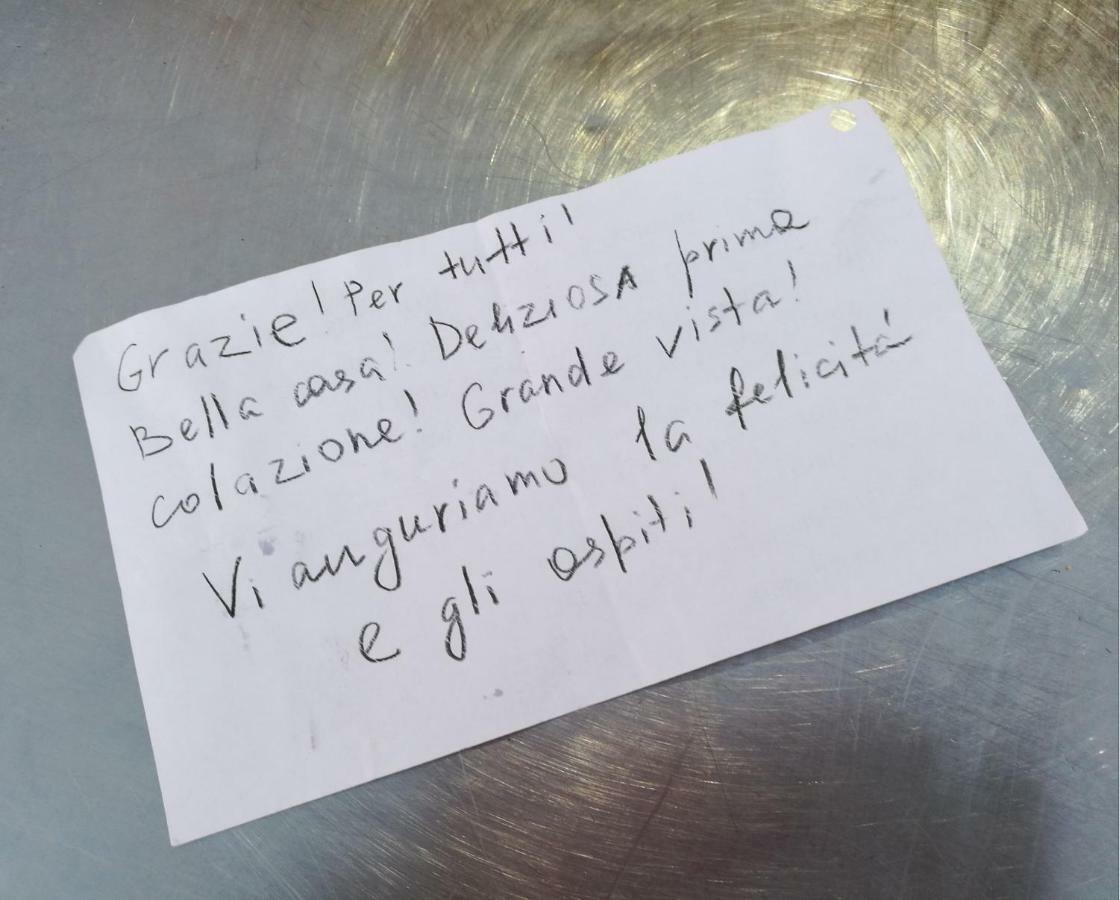 Grazie! Per tutti!
Bella casa! Deliziosa prima
colazione! Grande vista!
Vi auguriamo la felicitá
e gli ospiti!